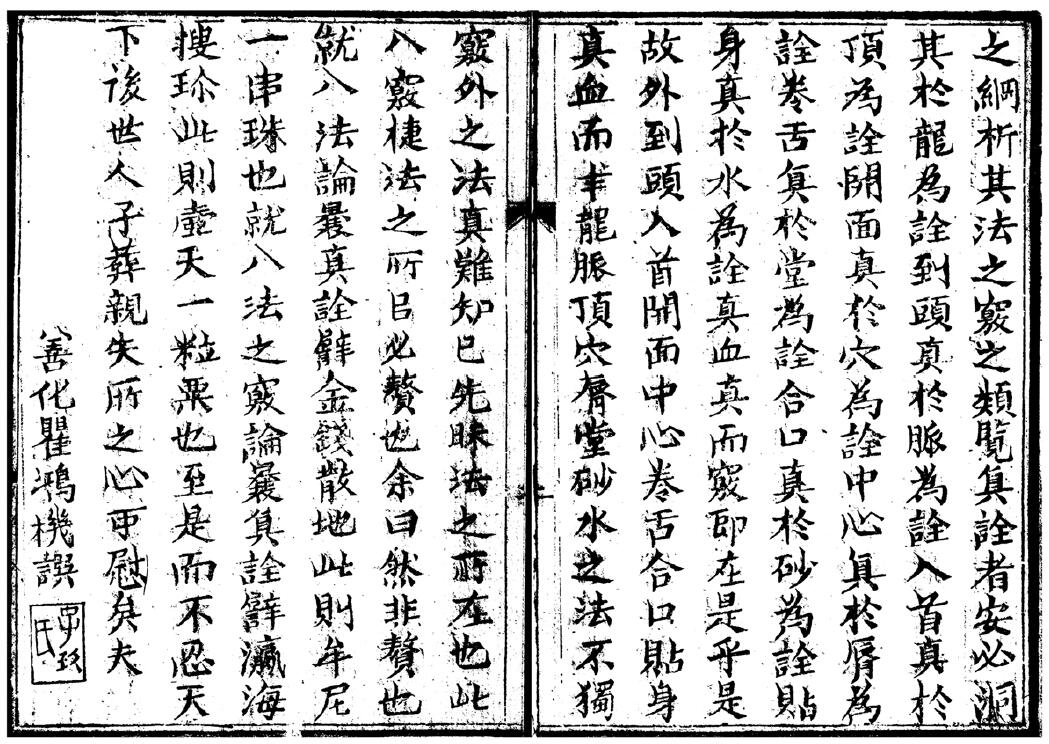 之綱析其法之竅之類覧真詮者安必洞
其於龍為詮到頭真於脈為詮入首真於
頂為詮開面真於穴為詮中心真於唇為
詮卷舌真於堂為詮合口真於砂為詮貼
身真於水為詮真血真而竅即在是乎是
故外到頭入首開面中心卷舌合口貼身
真血而求龍脈頂穴唇堂砂水之法不獨
竅外之法真難知已先昧法之所在也此
八竅楗法之所㠯必贅也余曰然非贅也
就八法論曩真詮辟金錢散地此則牟尼
一串珠也就八法之竅論曩真詮辟瀛海
搜珎此則壺天一粒粟也至是而不忍天
下後世人子葬親失所之心可慰矣夫
八善化瞿鴻機譔
子玖氏